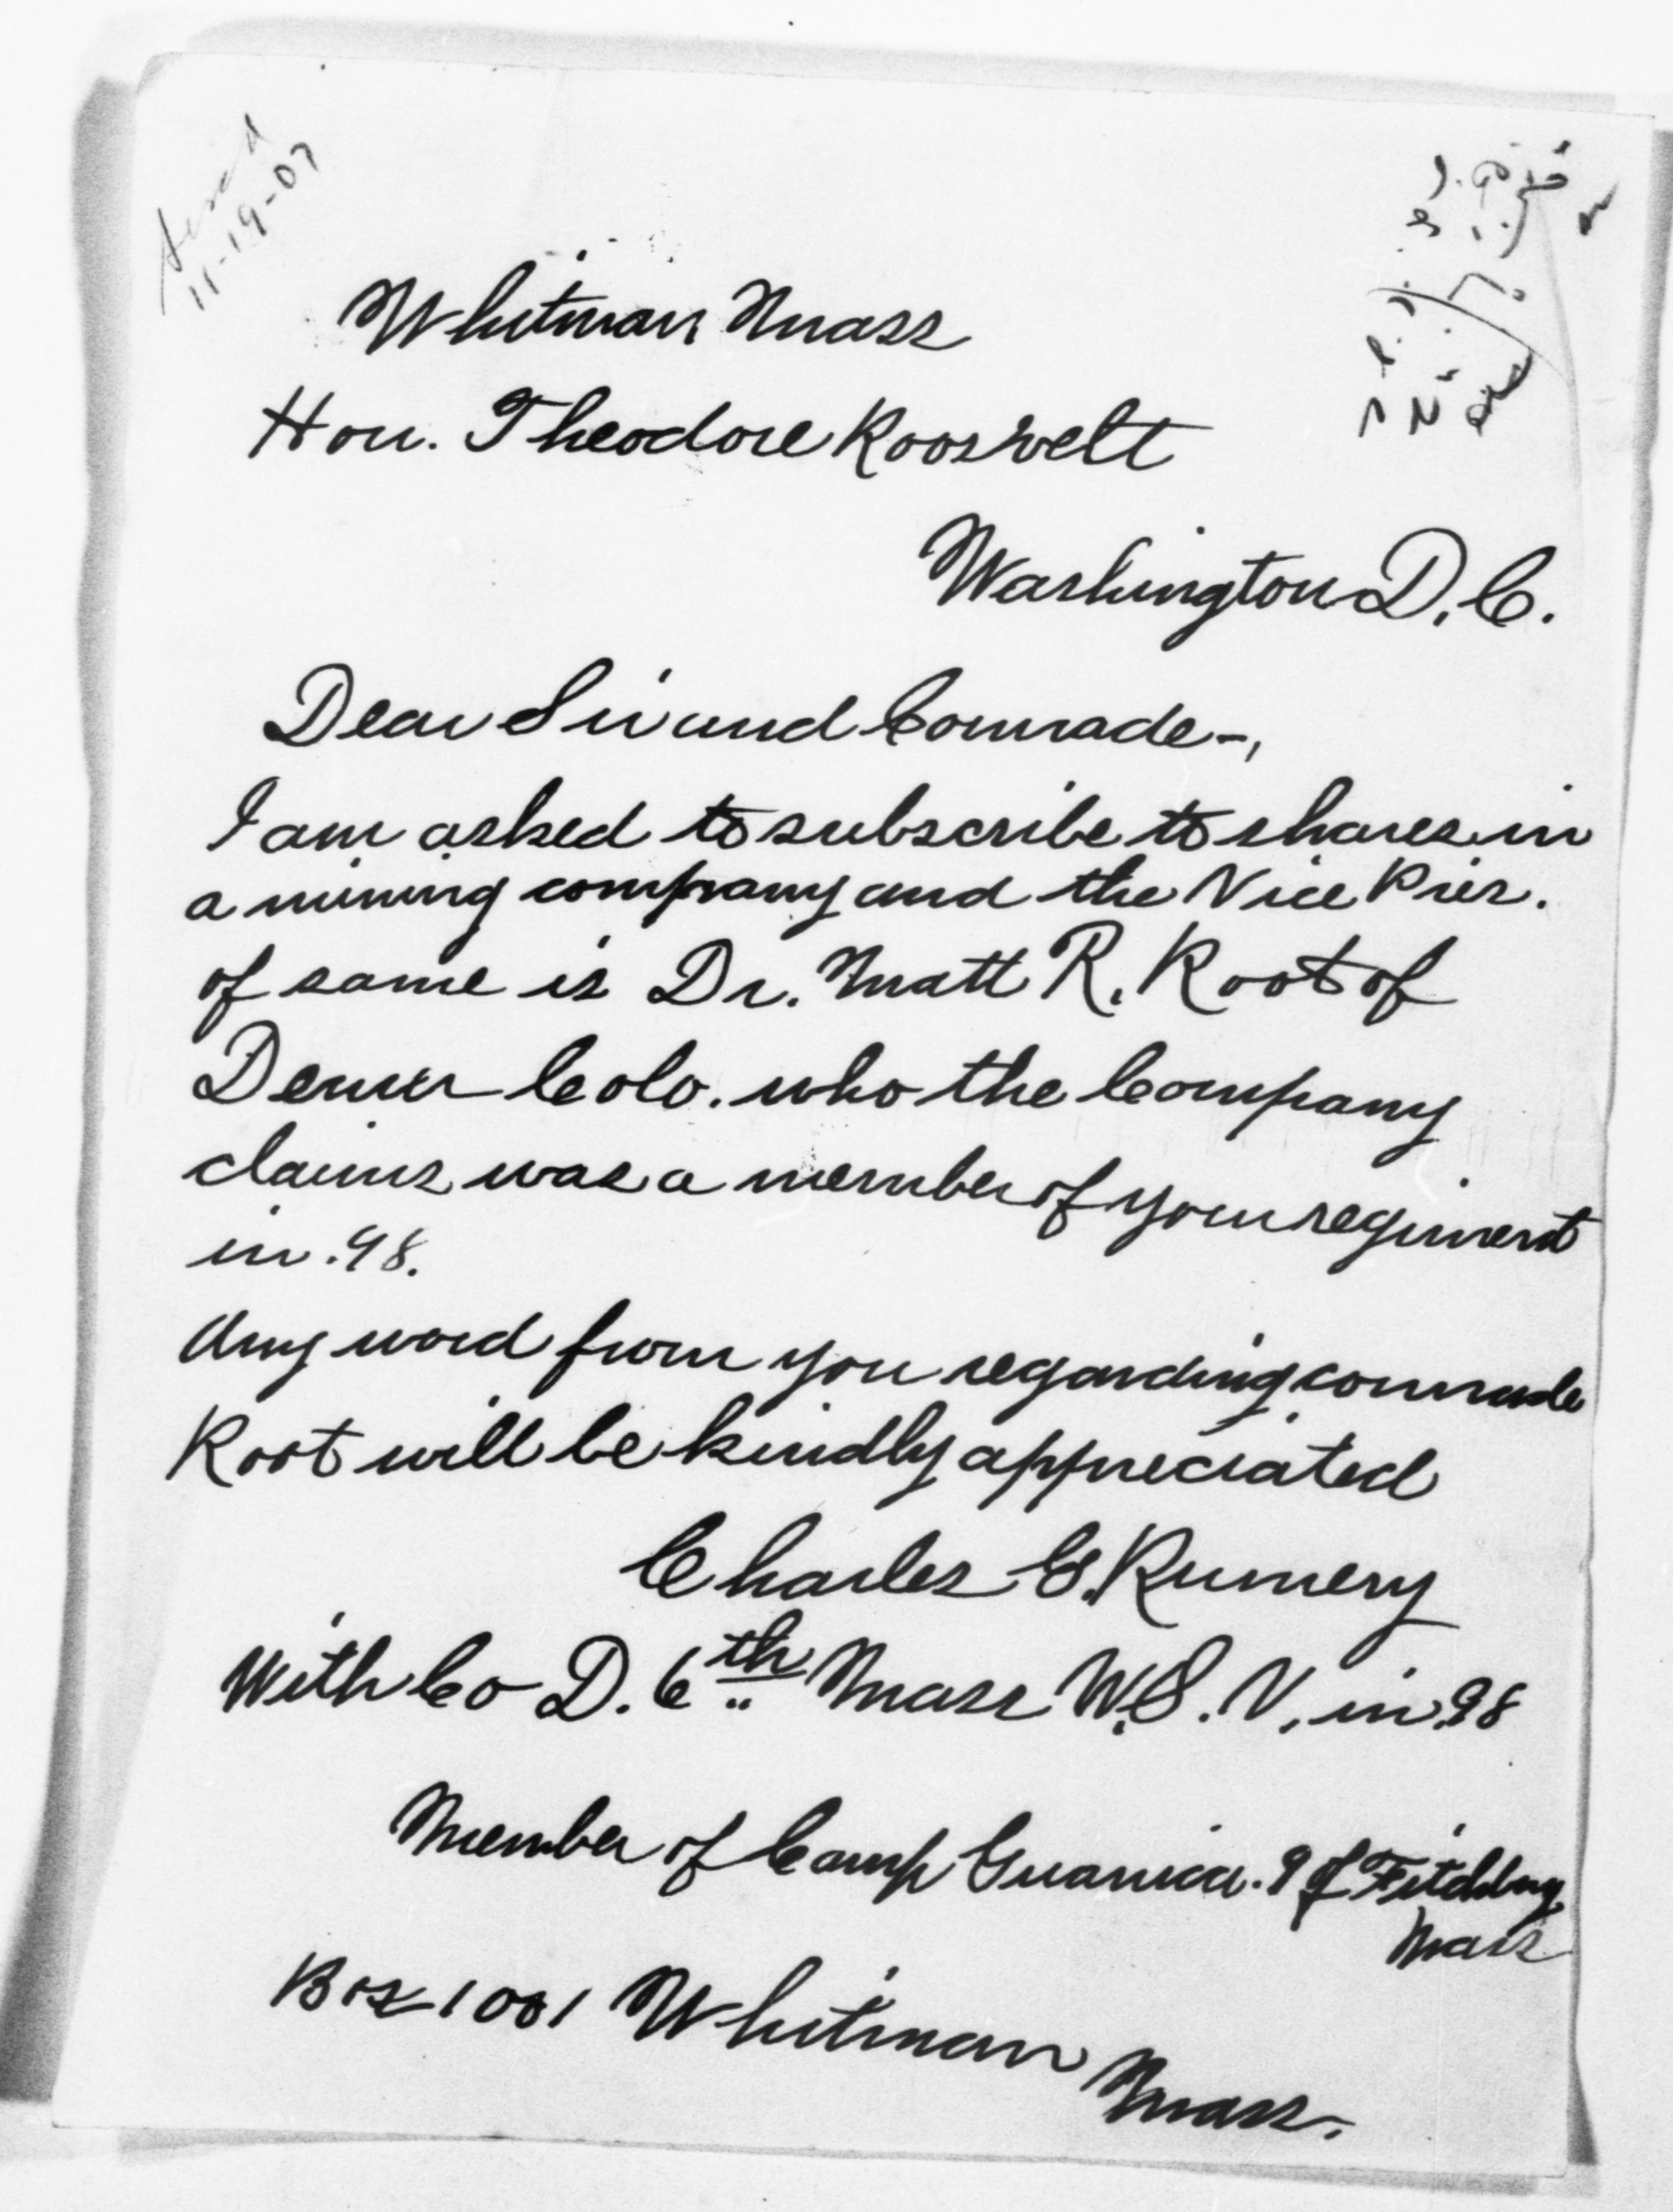 11-19-07
Whitman Mass
Hon. Theodore Roosvelt
Washington D.C.
Dear Sir and Comrade-,
I am asked to subscribe to shares in
a mining company and the Vice Pres.
of same is Dr. Matt R. Root of
Denver Colo. who the Company
claims was a member of your regiment
in .98.
Any word from you regarding comrade
Root will be kindly appreciated
Charles E. Rumery
With Co D. 6th Mass W.S.V. in .98
Member of Camp Guanica. 9 of Fitchburg
Mass
Box 1001 Whitman
Mass.